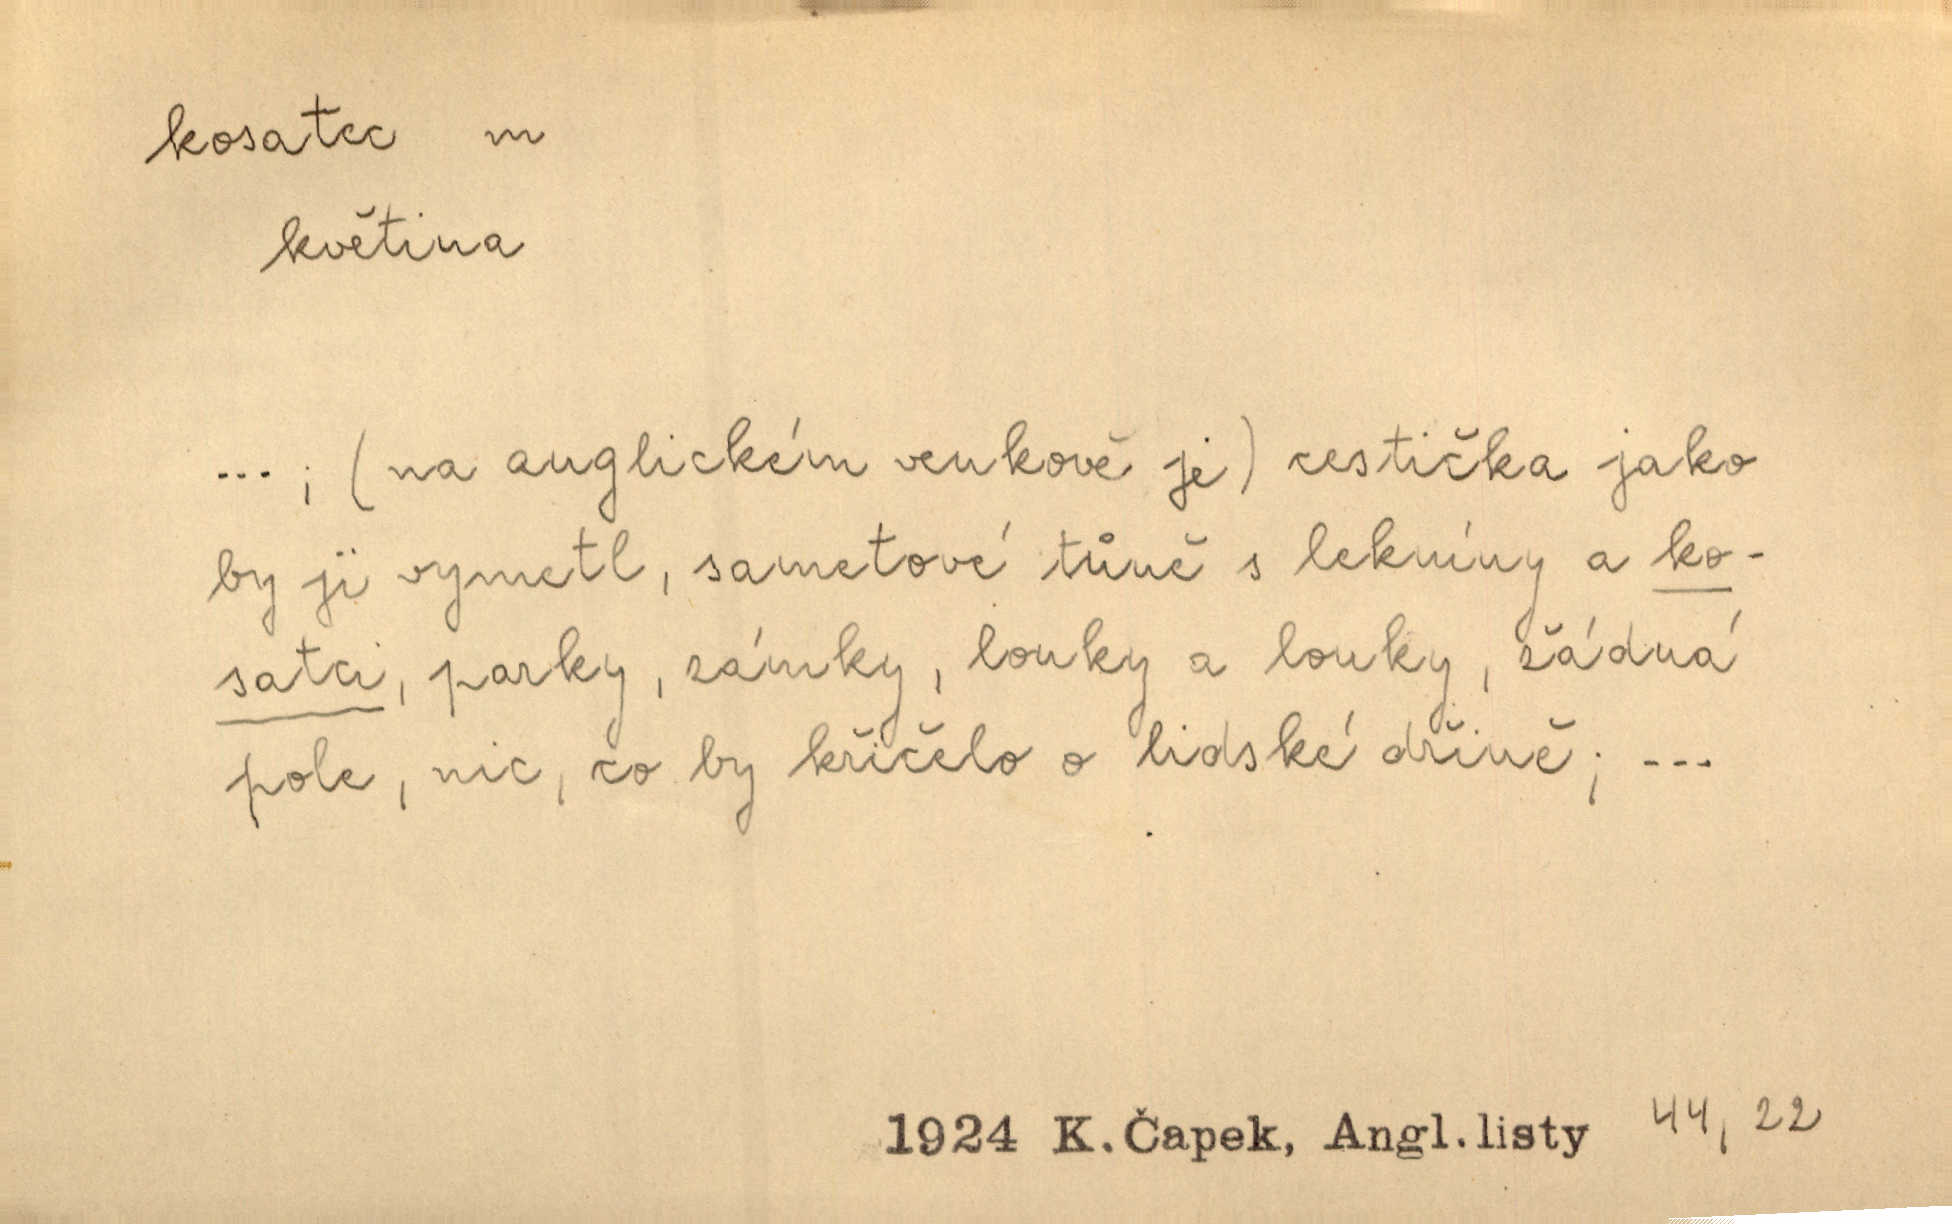 kosatec m
květina
...; (na anglickém venkově je) cestička jako
by ji vymetl, sametové tůně s lekníny a ko-
satci, parky, zámky, louky a louky, žádná
pole, nic, co by křičelo o lidské dřině; ---
1924 K. Čapek, Angl. listy 44, 22